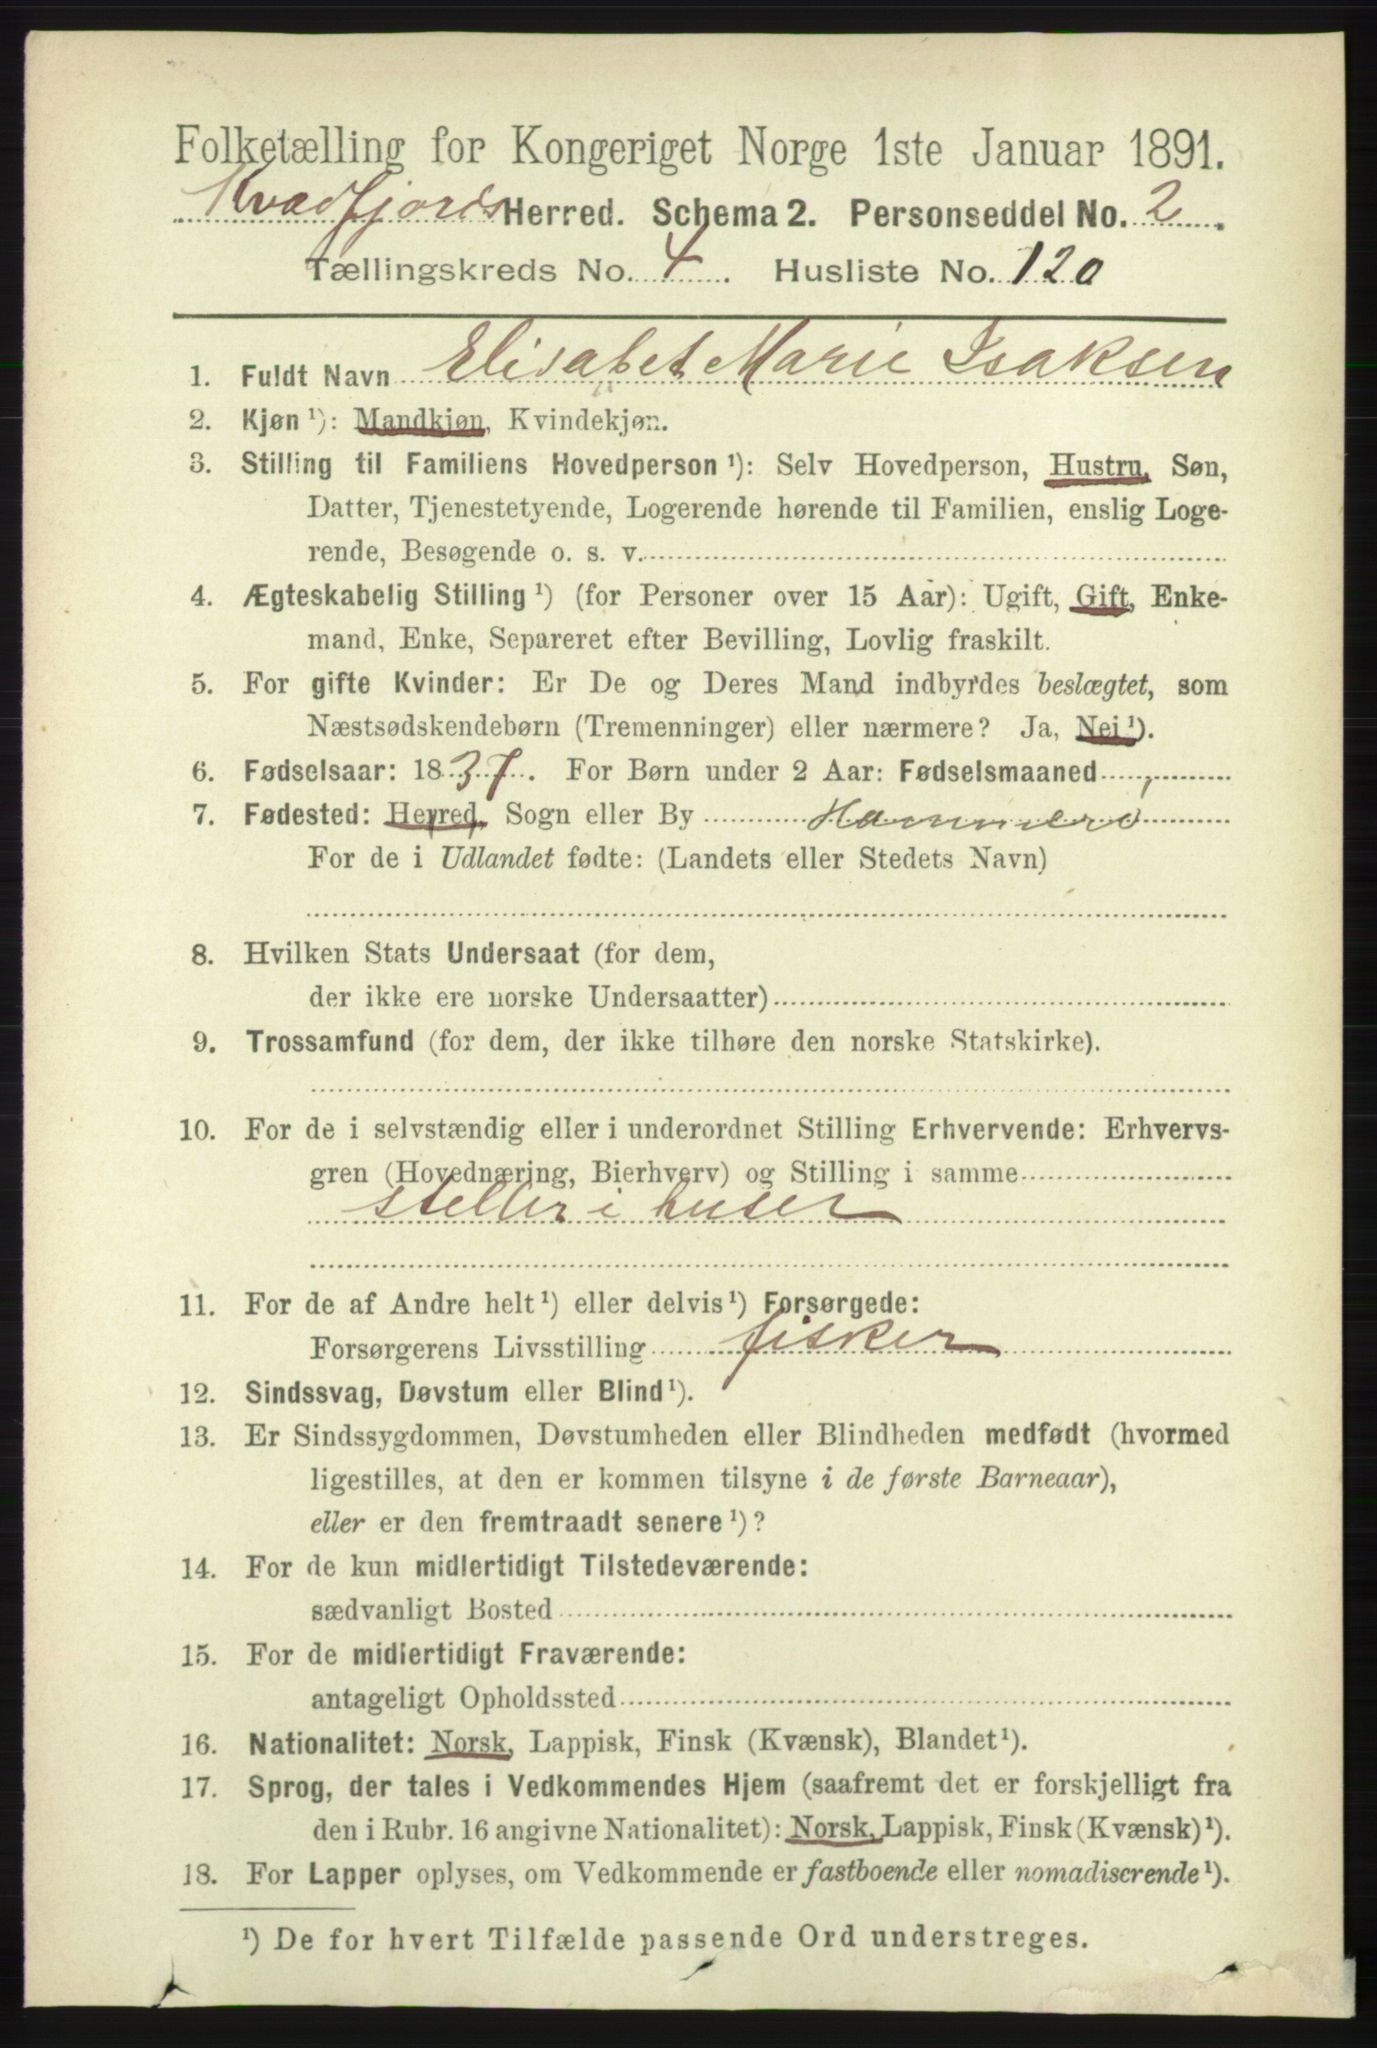 Folketælling for Kongeriget Norge 1ste Januar 1891.
Kvædfjords Herred. Schema 2. Personseddel No. 2.
Tællingskreds No. 4. Husliste No. 120
1. Fuldt Navn Elisabet Marie Isaksen
2. Kjøn ¹): Mandkjøn, Kvindekjøn.
3. Stilling til Familiens Hovedperson ¹): Selv Hovedperson, Hustru, Søn,
Datter, Tjenestetyende, Logerende hørende til Familien, enslig Loge-
rende, Besøgende o. s. v.
4. Ægteskabelig Stilling ¹) (for Personer over 15 Aar): Ugift, Gift, Enke-
mand, Enke, Separeret efter Bevilling, Lovlig fraskilt.
5. For gifte Kvinder: Er De og Deres Mand indbyrdes beslægtet, som
Næstsødskendebørn (Tremenninger) eller nærmere? Ja, Nei ¹).
6. Fødselsaar: 1837. For Børn under 2 Aar: Fødselsmaaned
7. Fødested: Herred, Sogn eller By Hammerø
For de i Udlandet fødte: (Landets eller Stedets Navn)
8. Hvilken Stats Undersaat (for dem,
der ikke ere norske Undersaatter)
9. Trossamfund (for dem, der ikke tilhøre den norske Statskirke).
10. For de i selvstændig eller i underordnet Stilling Erhvervende: Erhvervs-
gren (Hovednæring, Bierhverv) og Stilling i samme
steller i huset
11. For de af Andre helt ¹) eller delvis ¹) Forsørgede:
Forsørgerens Livsstilling fisker
12. Sindssvag, Døvstum eller Blind ¹).
13. Er Sindssygdommen, Døvstumheden eller Blindheden medfødt (hvormed
ligestilles, at den er kommen tilsyne i de første Barneaar),
eller er den fremtraadt senere ¹)?
14. For de kun midlertidigt Tilstedeværende:
sædvanligt Bosted
15. For de midlertidigt Fraværende:
antageligt Opholdssted
16. Nationalitet: Norsk, Lappisk, Finsk (Kvænsk), Blandet ¹).
17. Sprog, der tales i Vedkommendes Hjem (saafremt det er forskjelligt fra
den i Rubr. 16 angivne Nationalitet): Norsk, Lappisk, Finsk (Kvænsk) ¹).
18. For Lapper oplyses, om Vedkommende er fastboende eller nomadiserende ¹).
¹) De for hvert Tilfælde passende Ord understreges.